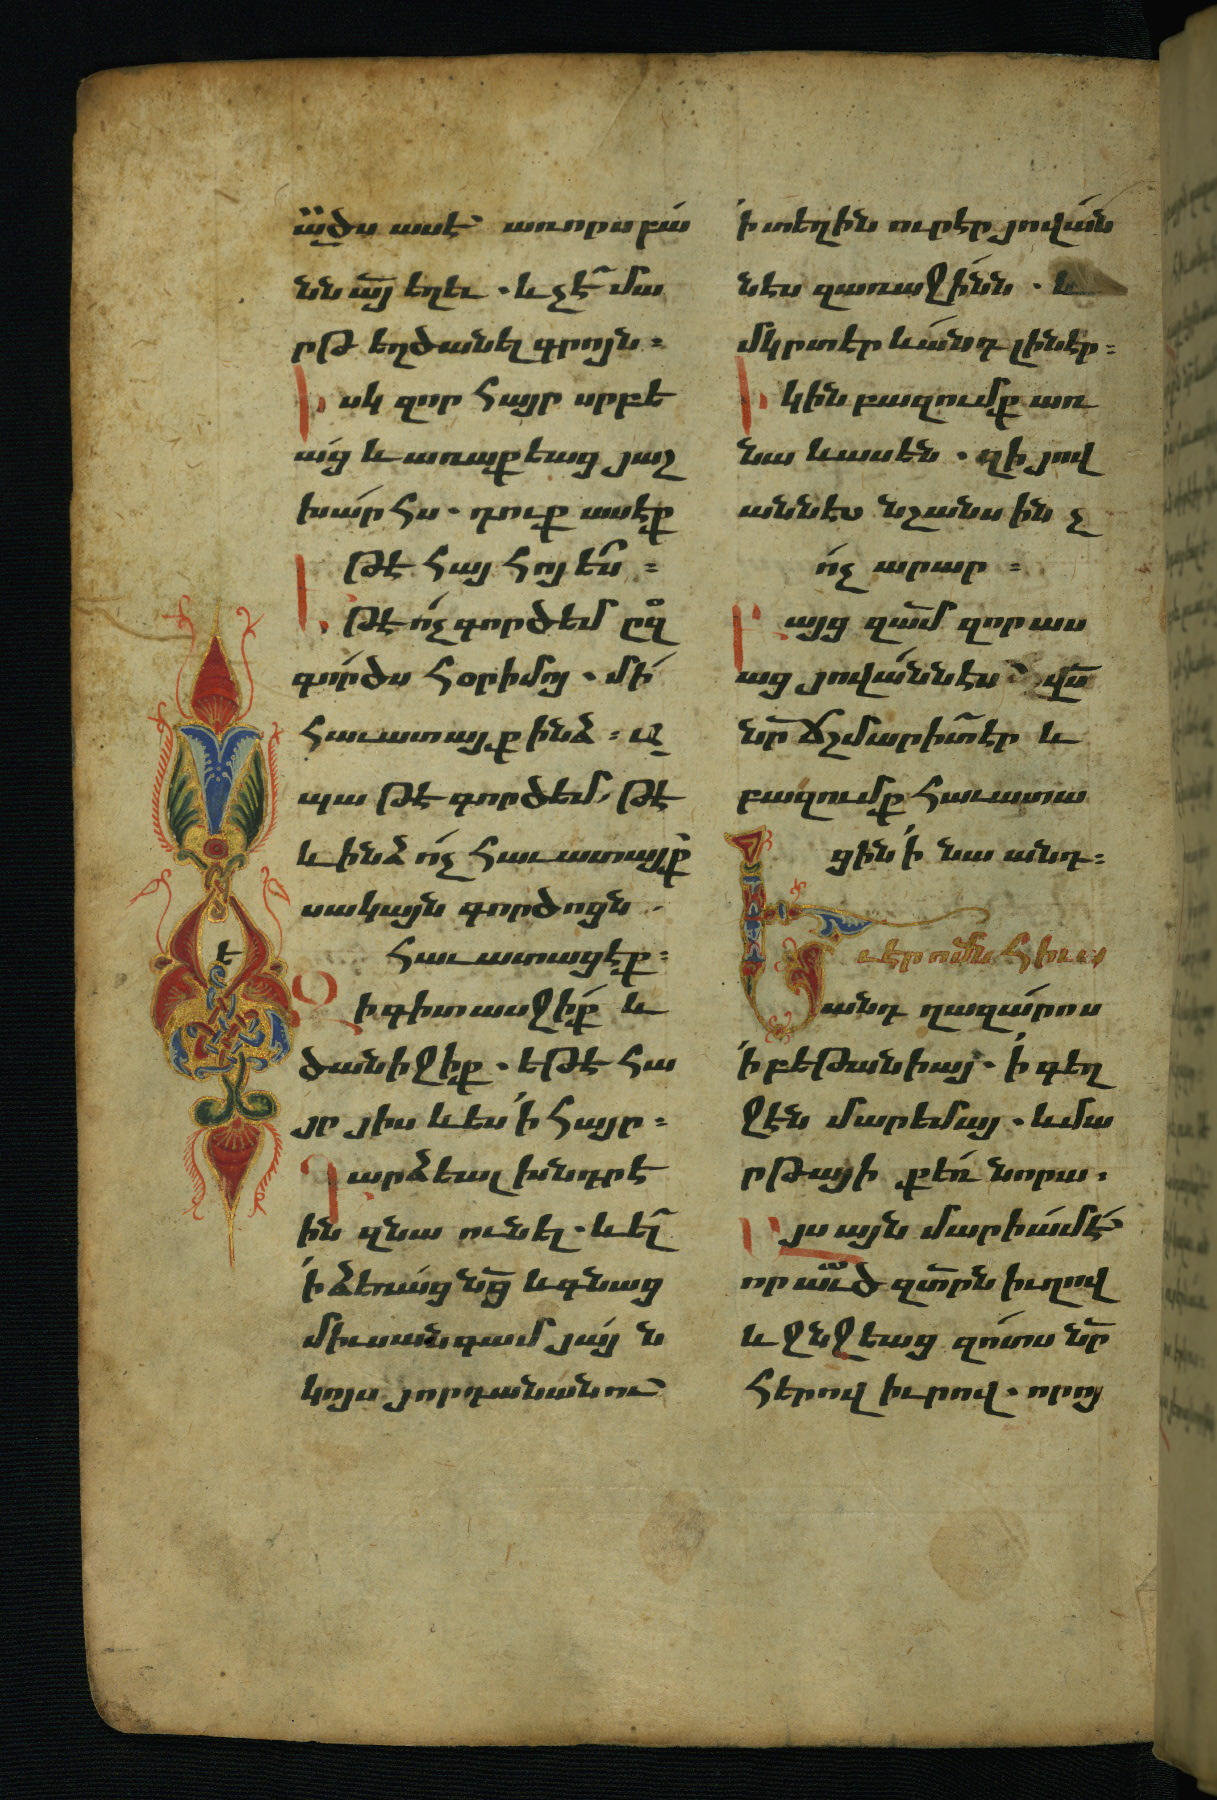 ա՟ծս ասէ՝ առորս բա՛
նն ա՟յ եղեւ. և չէ՟ մա
րթ եղծանել գրոյն։
Իսկ զոր հայր սրբե
ա՛ց և առաքեաց յաշ
խա՛րհս. դուք ասէք
թէ հայհոյե՟ս։
Եթէ ո՛չ գործեմ
գո՛րծս հօրիմոյ. մի՛
հաւատայք ինձ։ Ա
պա թէ գործեմ, թէ
և ինձ ո՛չ հաւատայք
սակայն գործոցն
հաւատացէք։
Զի գիտասջիք և
ծանիջիք. եթէ հա
յր յիս և ես՛ ի հայր։
Դարձեալ խնդրէ
ին զնա ունել. և ել՟
ի՛ ձեռա՛ց նց՟ և գնաց
միւսանգամ յայ՛ն
կոյս յորդանանու
ի՛ տեղին ուրէր յովա՛ն
նէս զառաջի՛նն. և
մկրտէր և ա՛նդ լինէր։
Եկին բազումք առ
նա և ասէն. զի յով
աննէս նշանս ինչ
ո՛չ արար։
Բայց զա՟մ զոր աս
աց յովա՛ննէս՝ վս՟
նր՟ ճշմարի՟տէր և
բազումք հաւատա
ցին ի՛ նա անդ։
Եւէր ոմն հիւա
անդ ղազա՛րոս
ի՛ բեթանիայ. ի՛ գեղ
ջէն մարեմայ. և մա
րթայի քեռ՛ նորա.
Այս այն մարիա՛մէ՛
որ ա՟ւծ զտ՟րն իւղով
և ջնջեաց զո՛տս նր՟
հերով իւրով. որոյ
ե